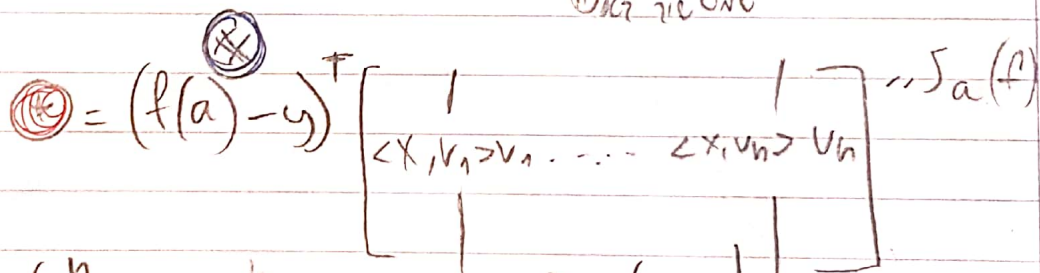 = (f(a) - y)ᵀ [<X, v₁>v₁ ..... <x, vₙ> vₙ] „J_a(f)